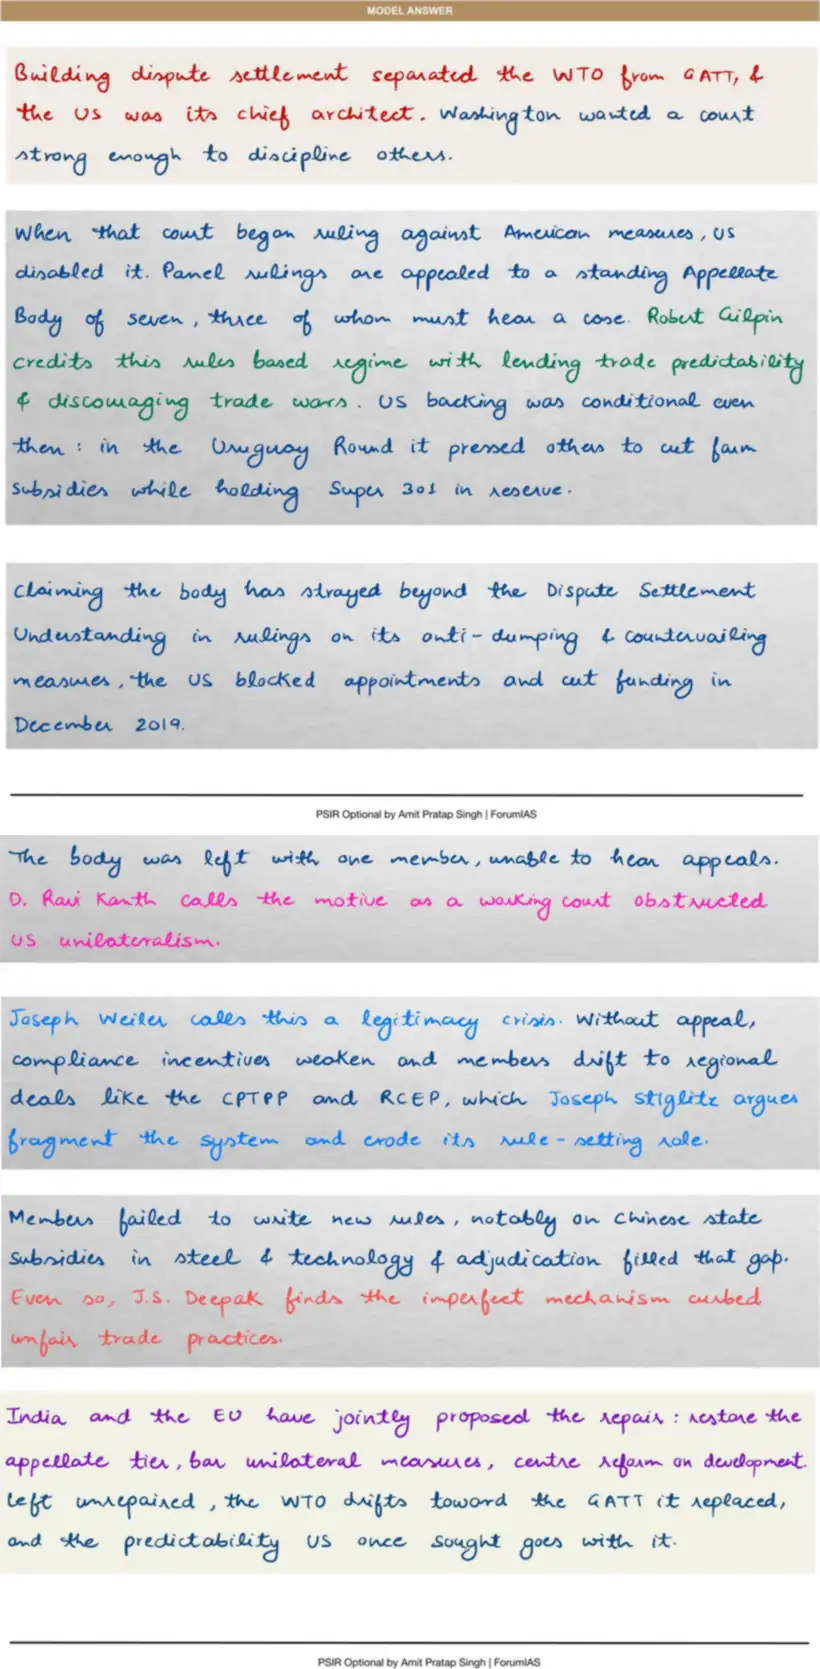 MODEL ANSWER
Building dispute settlement separated the WTO from GATT, &
the US was its chief architect. Washington wanted a court
strong enough to discipline others.
When that court began ruling against American measures, US
disabled it. Panel rulings are appealed to a standing Appellate
Body of seven, three of whom must hear a case. Robert Gilpin
credits this rules based regime with lending trade predictability
& discouraging trade wars. US backing was conditional even
then: in the Uruguay Round it pressed others to cut farm
subsidies while holding Super 301 in reserve.
Claiming the body has strayed beyond the Dispute Settlement
Understanding in rulings on its anti-dumping & countervailing
measures, the US blocked appointments and cut funding in
December 2019.
PSIR Optional by Amit Pratap Singh | ForumIAS
The body was left with one member, unable to hear appeals.
D. Ravi Kanth calls the motive as a working court obstructed
US unilateralism.
Joseph Weiler calls this a legitimacy crisis. Without appeal,
compliance incentives weaken and members drift to regional
deals like the CPTPP and RCEP, which Joseph Stiglitz argues
fragment the system and erode its rule-setting role.
Members failed to write new rules, notably on Chinese state
subsidies in steel & technology & adjudication filled that gap.
Even so, J.S. Deepak finds the imperfect mechanism curbed
unfair trade practices.
India and the EU have jointly proposed the repair: restore the
appellate tier, bar unilateral measures, centre reform on development.
Left unrepaired, the WTO drifts toward the GATT it replaced,
and the predictability US once sought goes with it.
PSIR Optional by Amit Pratap Singh | ForumIAS